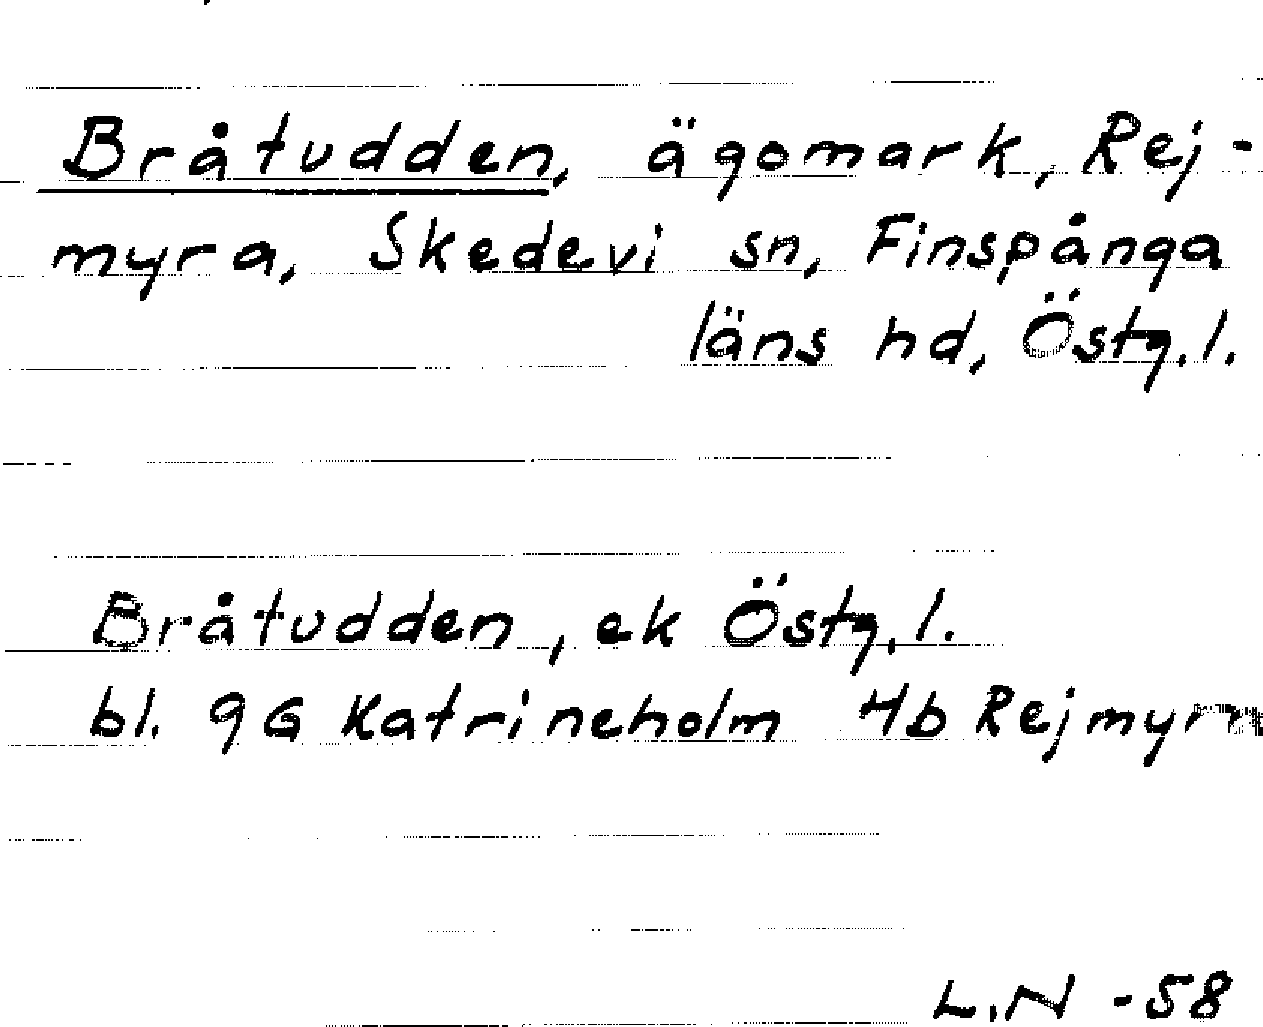 Bråtudden, ägomark, Rej-
myra, Skedevi sn, Finspånga
läns hd, Östg.l.
Bråtudden, ek Östg.l.
bl. 9G Katrineholm 4b Rejmyra
L.N -58